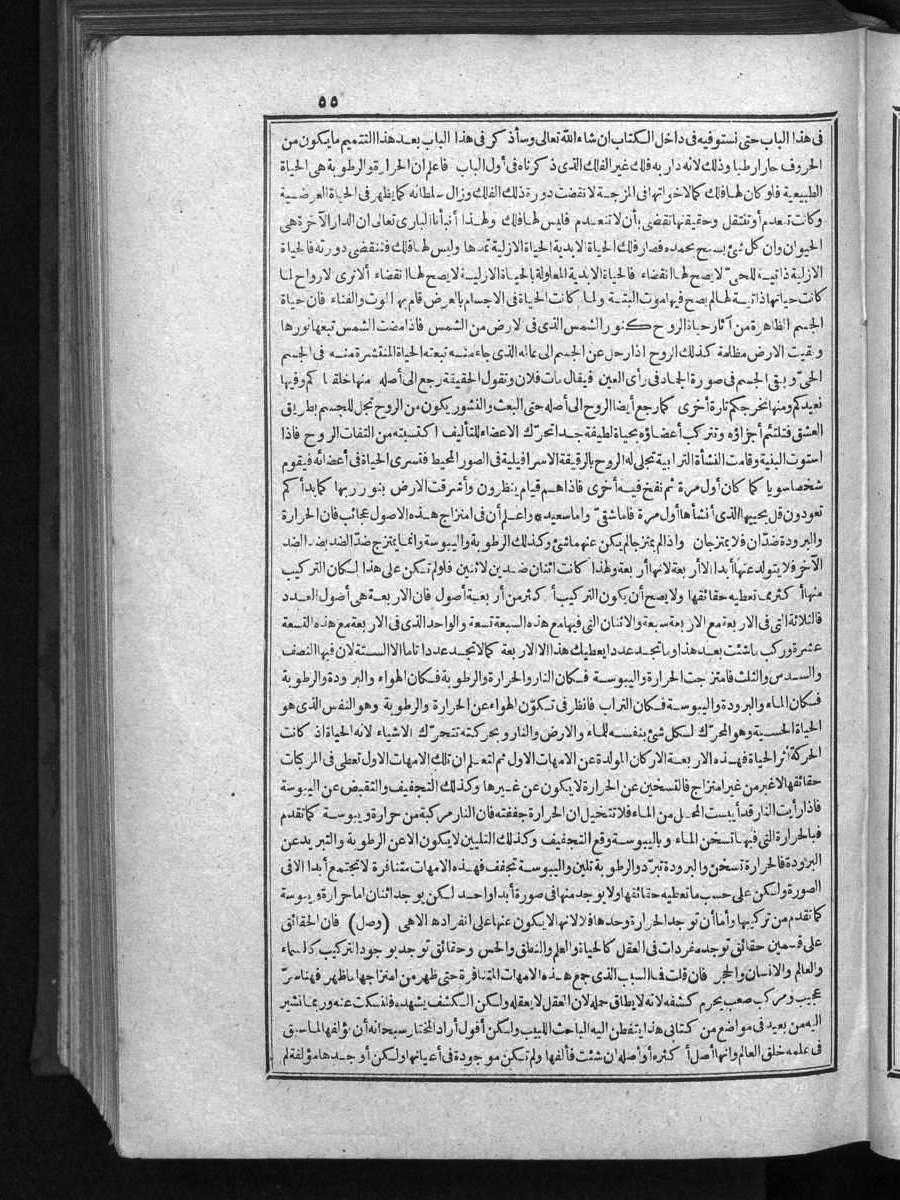 ٥٥
فى هذا الباب حتى نستوفيه فى داخل الكتاب ان شاء الله تعالى وسأذكر فى هذا الباب بعد هذا التتميم ما يكون من
الحروف حارا رطبا وذلك لانه دار به فلك غير الفلك الذى ذكرناه فى أول الباب فاعلم ان الحرارة والرطوبة هى الحياة
الطبيعية فلو كان لها فلك كما لاخواتها فى المزجة لانقضت دورة ذلك الفلك وزال سلطانه كما يظهر فى الحياة العرضية
وكانت تعدم أو تنتقل وحقيقتها تقضى بأن لا تنعدم فليس لها فلك ولهذا أنبأنا البارى تعالى ان الدار الآخرة هى
الحيوان وان كل شئ يسبح بحمده فصار فلك الحياة الابدية الحياة الازلية تمدها وليس لها فلك فتنقضى دورته فالحياة
الازلية ذاتية للحىّ لا يصح لها انقضاء فالحياة الابدية المعلولة بالحياة الازلية لا يصح لها انقضاء ألا ترى الارواح لما
كانت حياتها ذاتية لها لم يصح فيها موت البتة ولما كانت الحياة فى الاجسام بالعرض قام بها الموت والفناء فان حياة
الجسم الظاهرة من آثار حياة الروح كنور الشمس الذى فى الارض من الشمس فاذا مضت الشمس تبعها نورها
وبقيت الارض مظلمة كذلك الروح اذا رحل عن الجسم الى عالمه الذى جاء منه تبعته الحياة المنتشرة منه فى الجسم
الحىّ وبقى الجسم فى صورة الجماد فى رأى العين فيقال مات فلان وتقول الحقيقة رجع الى أصله منها خلقناكم وفيها
نعيدكم ومنها نخرجكم تارة أخرى كما رجع أيضا الروح الى أصله حتى البعث والنشور يكون من الروح تجل للجسم بطريق
العشق فتلتئم أجزاؤه وتتركب أعضاؤه بحياة لطيفة جدا تحرّك الاعضاء للتأليف اكتسبته من التفات الروح فاذا
استوت البنية وقامت النشأة الترابية تجلى له الروح بالرقيقة الاسرافيلية فى الصور المحيط فتسرى الحياة فى أعضائه فيقوم
شخصا سويا كما كان أول مرة ثم نفخ فيه أخرى فاذا هم قيام ينظرون وأشرقت الارض بنور ربها كما بدأكم
تعودون قل يحييها الذى أنشأها أول مرة فاما شقىّ واما سعيد * واعلم أن فى امتزاج هذه الاصول عجائب فان الحرارة
والبرودة ضدّان فلا يمتزجان واذا لم يمتزجا لم يكن عنهما شئ وكذلك الرطوبة واليبوسة وانما يمتزج ضدّ الضد بضد الضد
الآخر فلا يتولد عنها أبدا الا أربعة لانها أربعة ولهذا كانت اثنان ضدين لاثنين فلو لم تكن على هذا لكان التركيب
منها أكثر مما تعطيه حقائقها ولا يصح أن يكون التركيب أكثر من أربعة أصول فان الاربعة هى أصول العدد
فالثلاثة التى فى الاربعة مع الاربعة سبعة والاثنان التى فيها مع هذه السبعة تسعة والواحد الذى فى الاربعة مع هذه التسعة
عشرة وركب ما شئت بعد هذا وما تجد عددا يعطيك هذا الا الاربعة كما لا تجد عددا تاما الا الستة لان فيها النصف
والسدس والثلث فامتزجت الحرارة واليبوسة فكان النار والحرارة والرطوبة فكان الهواء والبرودة والرطوبة
فكان الماء والبرودة واليبوسة فكان التراب فانظر فى تكوّن الهواء عن الحرارة والرطوبة وهو النفس الذى هو
الحياة الحسية وهو المحرّك لكل شئ بنفسه للماء والارض والنار وبحركته تتحرّك الاشياء لانه الحياة اذ كانت
الحركة أثر الحياة فهذه الاربعة الاركان المولدة عن الامهات الاول ثم لتعلم ان تلك الامهات الاول تعطى فى المركبات
حقائقها لا غير من غير امتزاج فالتسخين عن الحرارة لا يكون عن غيرها وكذلك التجفيف والتقبض عن اليبوسة
فاذا رأيت النار قد أيبست المحل من الماء فلا تتخيل ان الحرارة جففته فان النار مركبة من حرارة ويبوسة كما تقدم
فبالحرارة التى فيها تسخن الماء وباليبوسة وقع التجفيف وكذلك التليين لا يكون الا عن الرطوبة والتبريد عن
البرودة فالحرارة تسخن والبرودة تبرّد والرطوبة تلين واليبوسة تجفف فهذه الامهات متنافرة لا تجتمع أبدا الا فى
الصورة ولكن على حسب ما تعطيه حقائقها ولا يوجد منها فى صورة أبدا واحد لكن يوجد اثنان اما حرارة ويبوسة
كما تقدم من تركيبها وأما أن توجد الحرارة وحدها فلا لانها لا يكون عنها على انفرادها الا هى (وصل) فان الحقائق
على قسمين حقائق توجد مفردات فى العقل كالحياة والعلم والنطق والحس وحقائق توجد بوجود التركيب كالسماء
والعالم والانسان والحجر فان قلت فما السبب الذى جمع هذه الامهات المتنافرة حتى ظهر من امتزاجها ما ظهر فهنا سرّ
عجيب ومركب صعب يحرم كشفه لانه لا يطاق حمله لان العقل لا يعقله ولكن الكشف يشهده فلنسكت عنه وربما نشير
اليه من بعيد فى مواضع من كتابى هذا يتفطن اليه الباحث اللبيب ولكن أقول أراد المختار سبحانه أن يؤلفها لما سبق
فى علمه خلق العالم وانها أصل أكثره أو أصله ان شئت فألفها ولم تكن موجودة فى أعيانها ولكن أوجدها مؤلفة لم